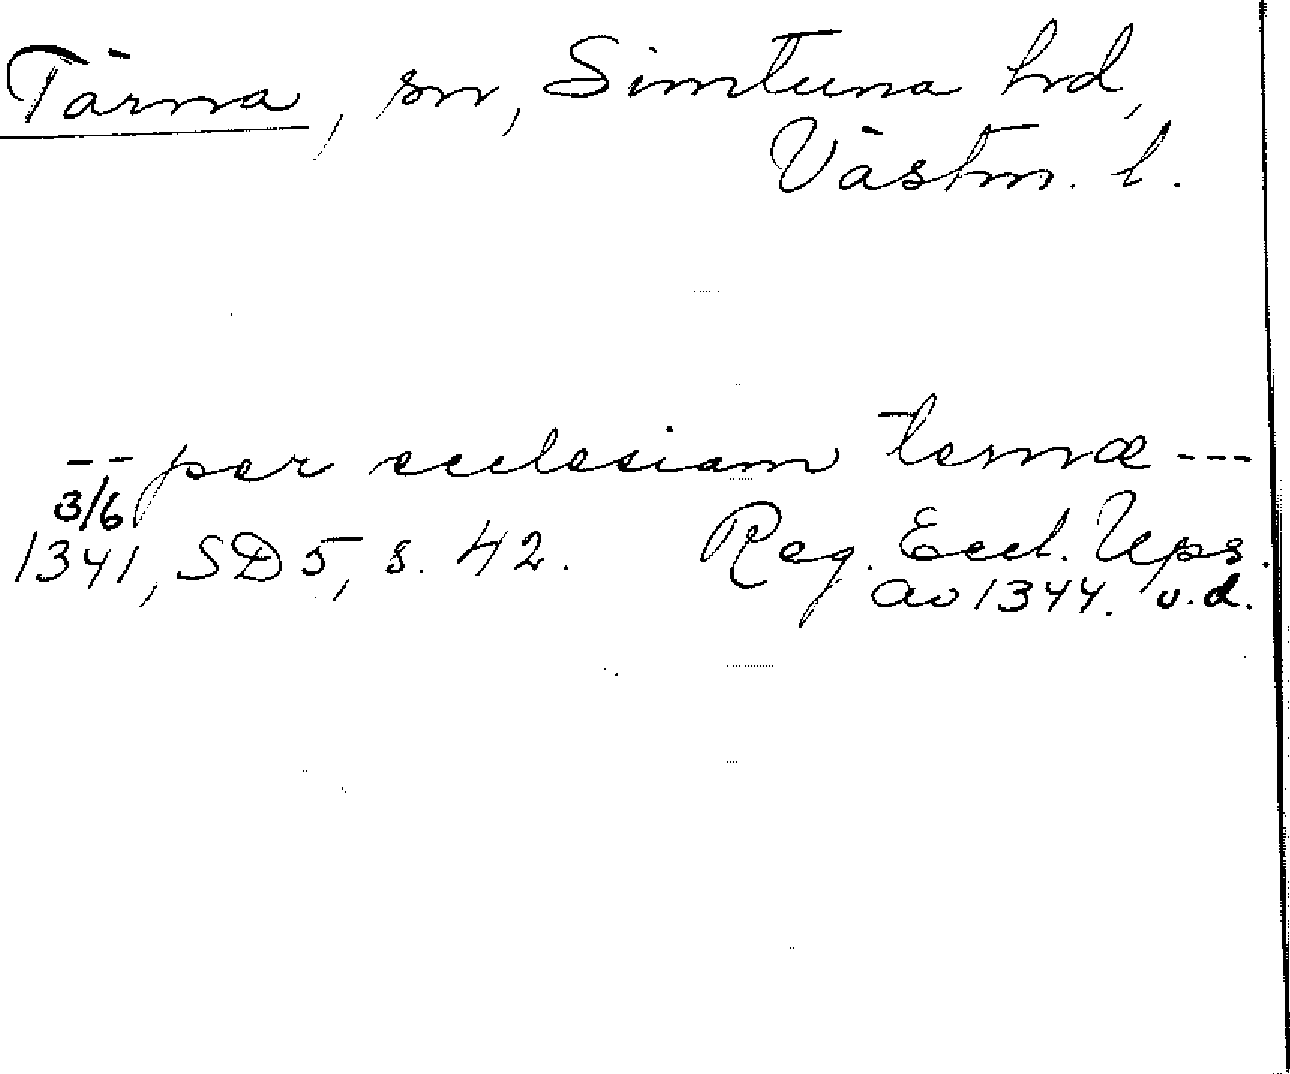 Tärna, sn, Simtuna hd,
Västm. l.
-- per ecclesiam ternæ ---
3/6
1341, SD 5, s. 42. Reg. Eccl. Ups.
av 1344. v.d.